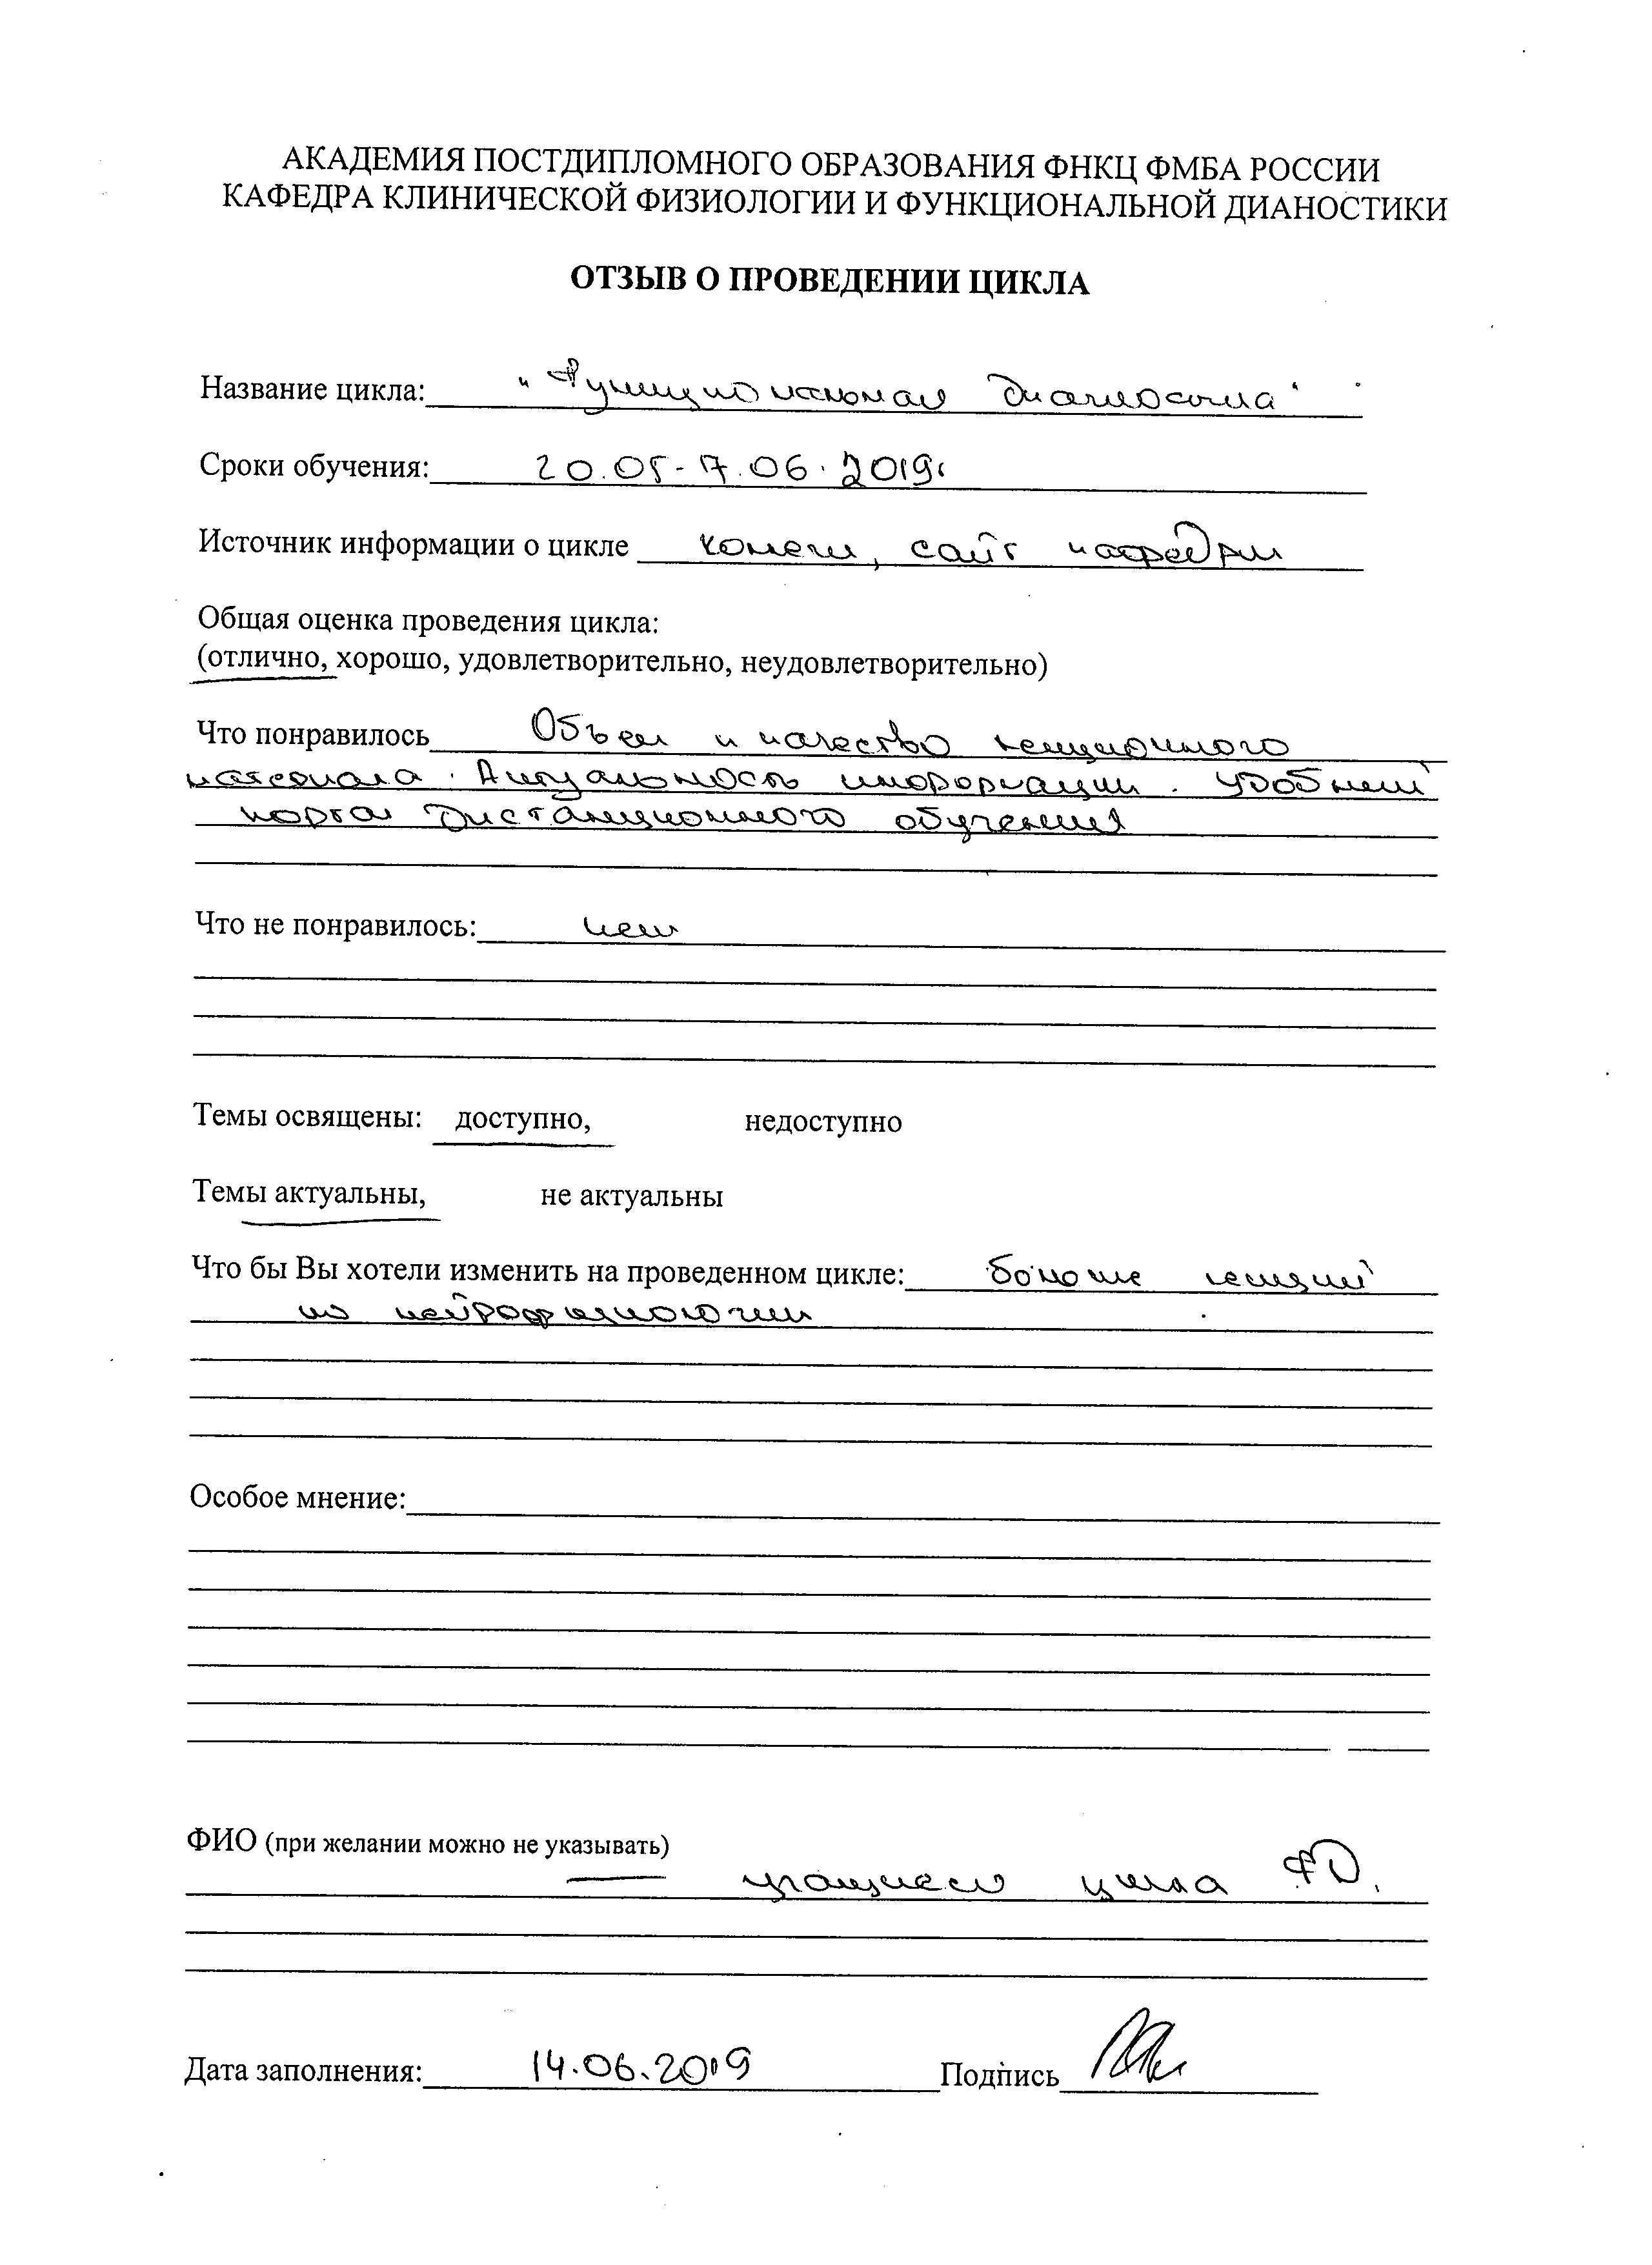 АКАДЕМИЯ ПОСТДИПЛОМНОГО ОБРАЗОВАНИЯ ФНКЦ ФМБА РОССИИ
КАФЕДРА КЛИНИЧЕСКОЙ ФИЗИОЛОГИИ И ФУНКЦИОНАЛЬНОЙ ДИАНОСТИКИ
ОТЗЫВ О ПРОВЕДЕНИИ ЦИКЛА
Название цикла: "Функциональная диагностика"
Сроки обучения: 20.05-7.06.2019г
Источник информации о цикле коллеги, сайт кафедры
Общая оценка проведения цикла:
(отлично, хорошо, удовлетворительно, неудовлетворительно)
Что понравилось Объем и качество лекционного
материала. Актуальность информации. Удобный
портал дистанционного обучения
Что не понравилось: нет
Темы освящены: доступно, недоступно
Темы актуальны, не актуальны
Что бы Вы хотели изменить на проведенном цикле: больше лекций
по нейрофизиологии
Особое мнение:
ФИО (при желании можно не указывать)
цикла ФД.
Дата заполнения: 14.06.2019 Подпись